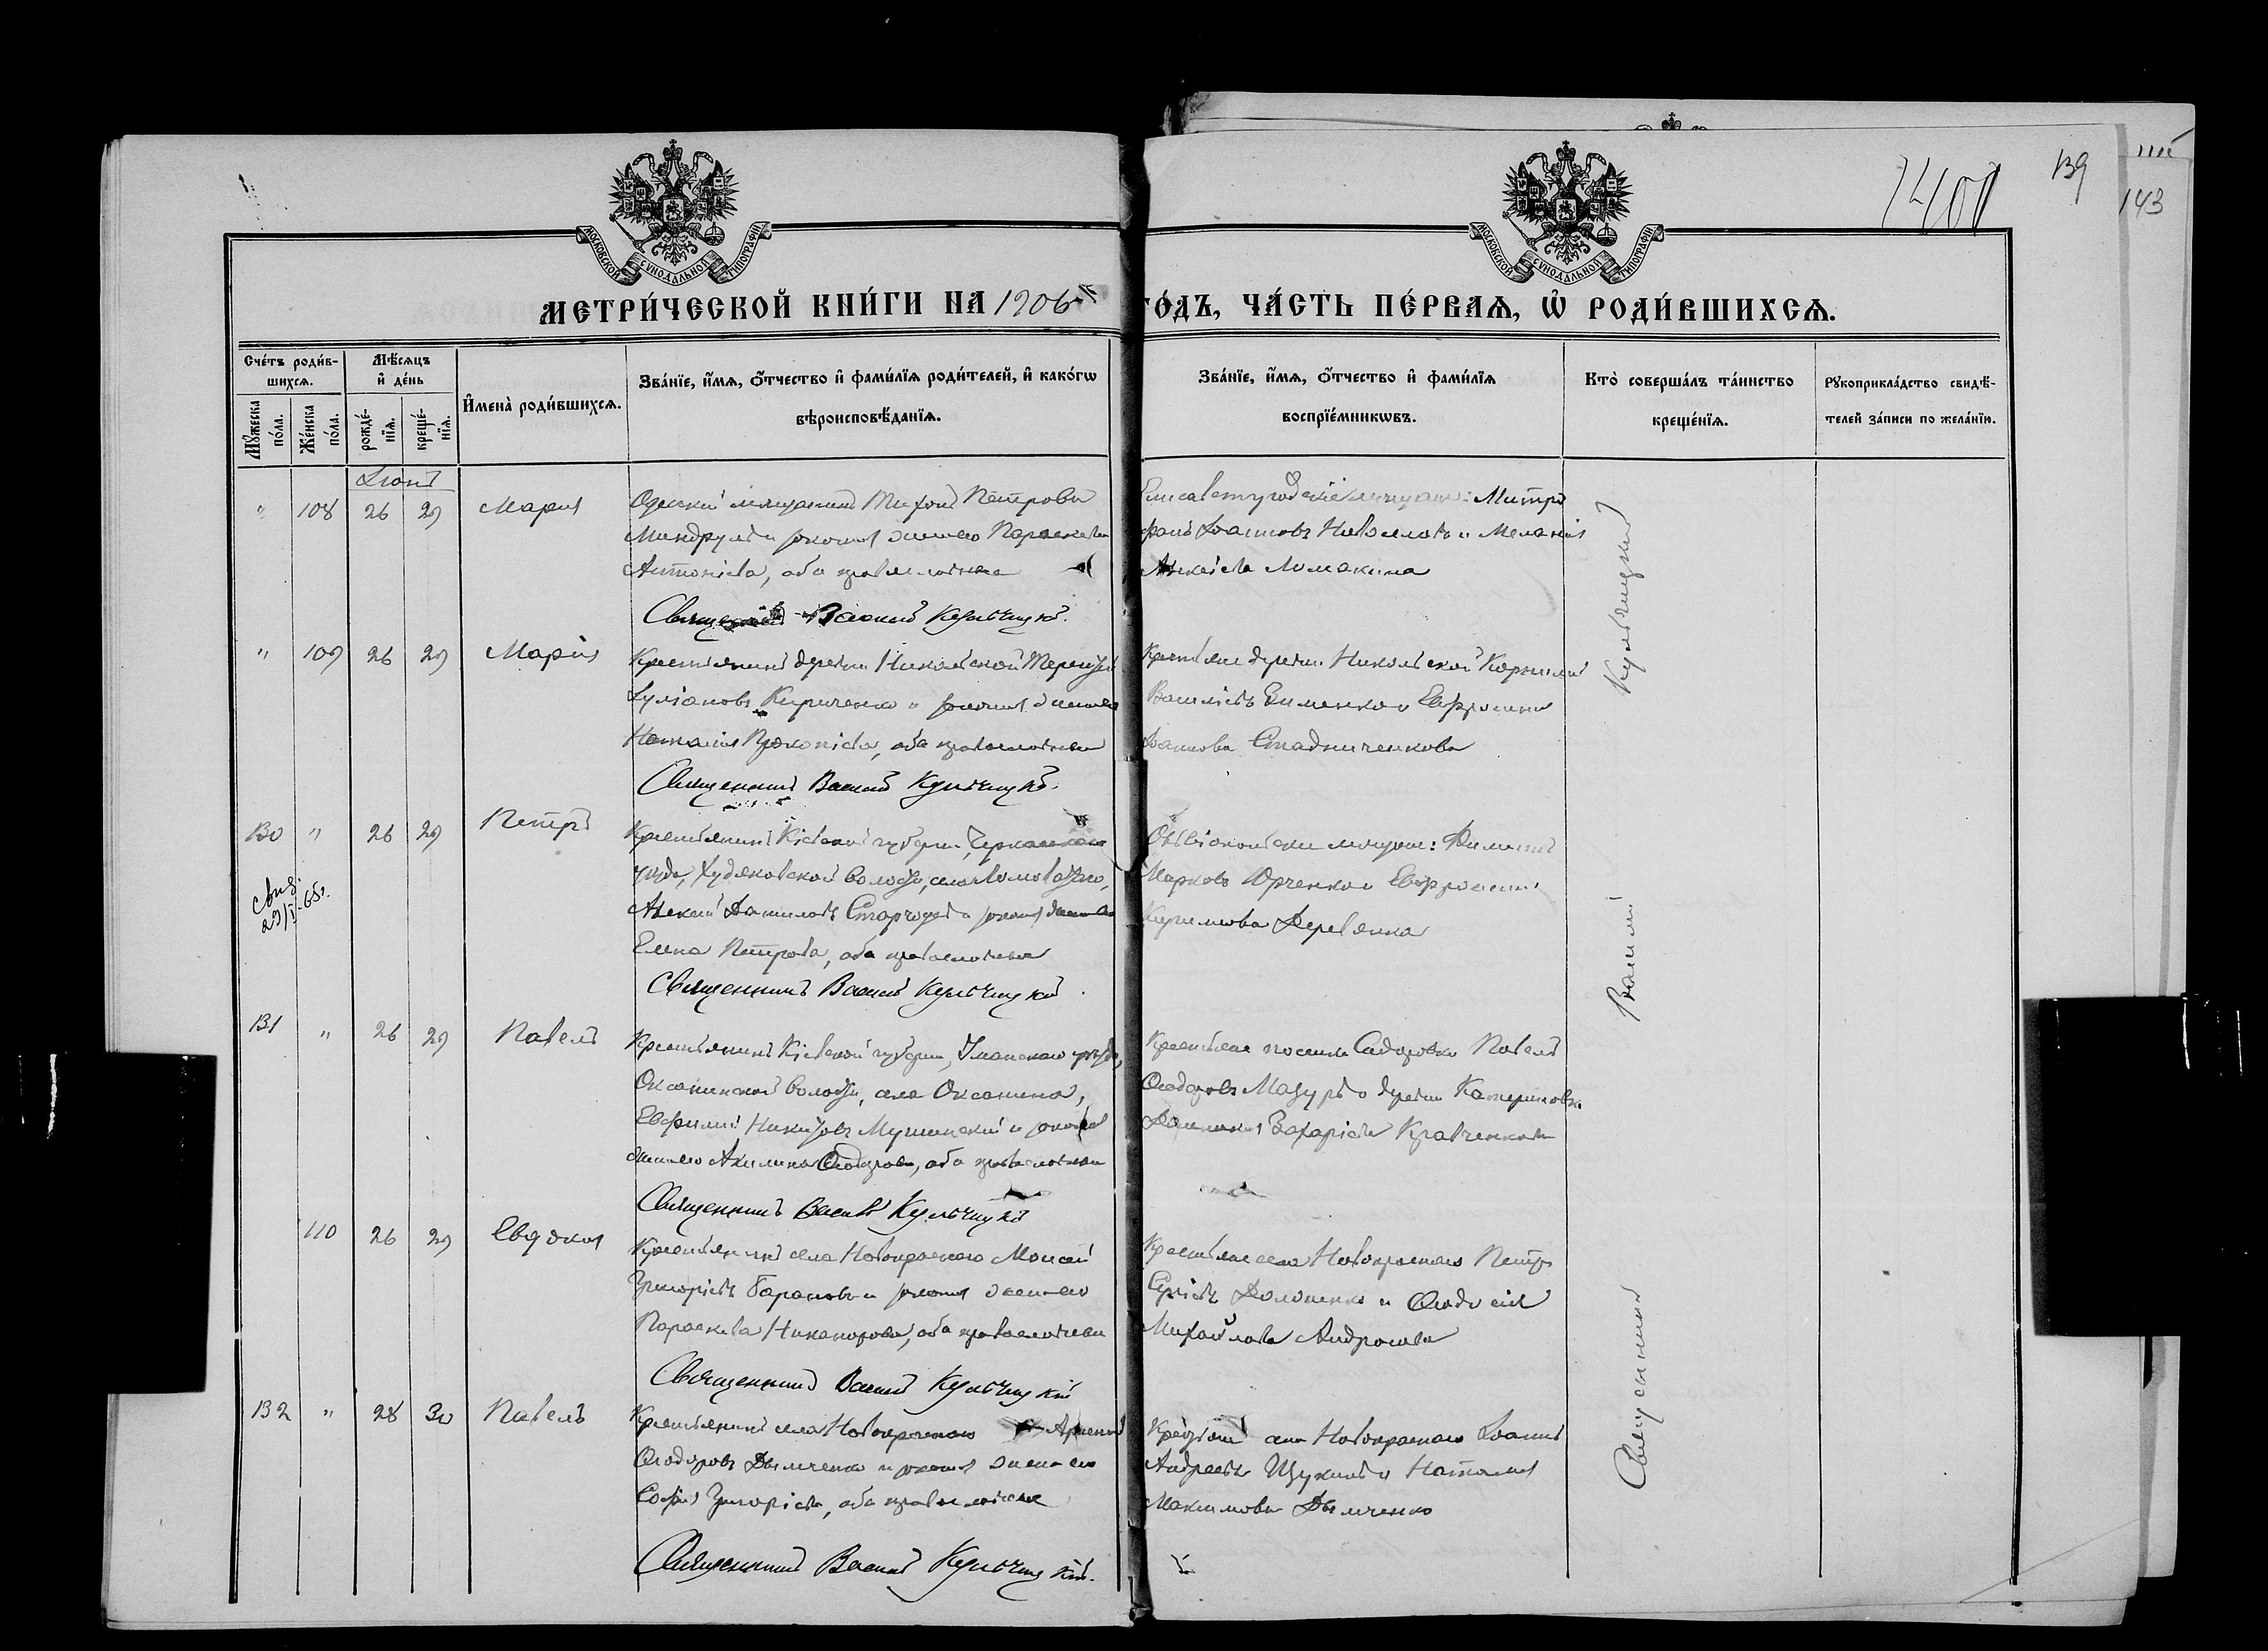 139
143
МОСКОВСКОЙ СУНОДАЛЬНОЙ ТИПОГРАФІИ
МОСКОВСКОЙ СУНОДАЛЬНОЙ ТИПОГРАФІИ
МЕТРИ́ЧЕСКОЙ КНИ́ГИ НА 1906 ГО́ДЪ, ЧА́СТЬ ПЕ́РВАѦ, Ѡ҆ РОДИ́ВШИХСѦ.
Сче́тъ роди́в-
шихсѧ.
Мꙋ́жеска по́ла.
Же́нска по́ла.
Мѣ́сѧцъ
и҆ де́нь
рожде́-
нїѧ.
креще́-
нїѧ.
И҆мена̀ роди́вшихсѧ.
Зва́нїе, и҆́мѧ, ѻ҆́тчество и҆ фами́лїѧ роди́телей, и҆ како́гѡ
вѣроисповѣ́данїѧ.
Зва́нїе, и҆́мѧ, ѻ҆́тчество и҆ фами́лїѧ
воспрїе́мникѡвъ.
Кто̀ соверша́лъ та́инство
креще́нїѧ.
Рꙋкоприкла́дство свидѣ́-
телей за́писи по жела́нїю.
Іюнь
" 108 26 29 Марія
Одескій мѣщанинъ Тихонъ Петровъ
и законная жена его Параскева
Антоніева, оба православные
Священникъ Василій Кульчицкій.
Елисаветградскіе мѣщане: Митро
фанъ Іоанновъ и Меланія
Алексіева Ломакина
" 109 26 29 Марія
Крестьянинъ деревни Никольской Терентій
Іуліановъ Кириченко и законная жена его
Наталія Прокопіева, оба православные
Священникъ Василій Кульчицкій.
Крестьяне деревни Никольской Корнилій
Василіевъ Зименко и Евфросинія
Іоаннова Стадниченкова
130 " 26 29 Петръ
свид.
29/I-65г.
Крестьянинъ Кіевской губерніи, Черкасскаго
уѣзда, Худяковской волости, села
Алексій Даниловъ и законная жена его
Елена Петрова, оба православные
Священникъ Василій Кульчицкій.
мѣщане: Филиппъ
Марковъ Юрченко и Евфросинія
Деревянка
131 " 26 29 Павелъ
Крестьянинъ Кіевской губерніи, Уманскаго уѣзда,
Оксанинской волости, села Оксанина,
Евфимій Никитовъ и законная
жена его Акилина Ѳеодорова, оба православные
Священникъ Василій Кульчицкій
Крестьяне поселка Сидоровки Павелъ
Ѳеодоровъ Мазуръ и деревни Катериновки
Захаріева Кравченкова
110 26 29 Евдокія
Крестьянинъ села Новокраснаго Моисей
Григоріевъ Барановъ и законная жена его
Параскева Никанорова, оба православные
Священникъ Василій Кульчицкій
Крестьяне села Новокраснаго Петръ
Сергіевъ и Ѳеодосія
Михайлова Андроnова
132 " 28 30 Павелъ
Крестьянинъ села Новокраснаго Арсеній
Ѳеодоровъ Дымченко и законная жена его
Софія Григоріева, оба православные
Священникъ Василій Кульчицкій.
Крестьяне села Новокраснаго Іоаннъ
Андреевъ Щукинъ и Наталія
Максимова Дымченко
Священникъ Василій Кульчицкій